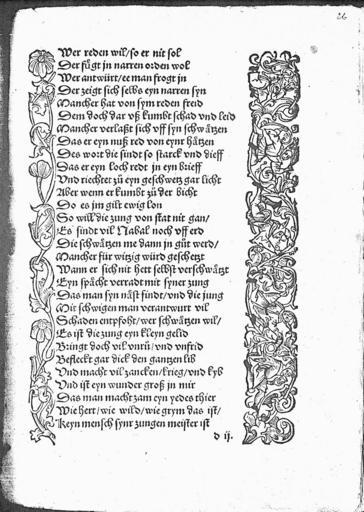 26
Wer reden wil/so er nit sol
Der fůgt jn narren orden wol
Wer antwürt/ee man frogt jn
Der zeigt sich selbs eyn narren syn
Mancher hat von sym reden freid
Dem doch dar vß kumbt schad vnd leid
Mancher verlaßt sich vff syn schwätzen
Das er eyn nuß red von eynr hätzen
Des wort die sindt so starck vnd dieff
Das er eyn loch redt jn eyn brieff
Vnd riechtet zů eyn geschwetz gar licht
Aber wenn er kumbt zů der bicht
Do es jm gilt ewig lon
So will die zung von stat nit gan/
Es sindt vil Nabal noch vff erd
Die schwätzen me dann jn gůt werd/
Mancher für witzig würd geschetzt
Wann er sich nit hett selbst verschwätzt
Eyn spächt verradt mit syner zung
Das man syn näst findt/vnd die jung
Mit schwigen man verantwurt vil
Schaden entpfoht/wer schwätzen wil/
Es ist die zung eyn kleyn gelid
Bringt doch vil vnrů/vnd vnfrid
Befleckt gar dick den gantzen lib
Vnd macht vil zancken/krieg/vnd kyb
Vnd ist eyn wunder groß jn mir
Das man macht zam eyn yedes thier
Wie hert/wie wild/wie grym das ist/
Keyn mensch synr zungen meister ist
d ij.